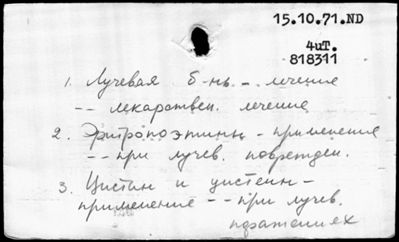 15.10.71.ND
4uT.
818311
1. Лучевая б-нь - лечение
-- лекарствен. лечение
2. Эритропоэтины - применение
-- при лучев. поврежден.
3. Цистин и цистеин -
применение -- при лучев.
поражениях